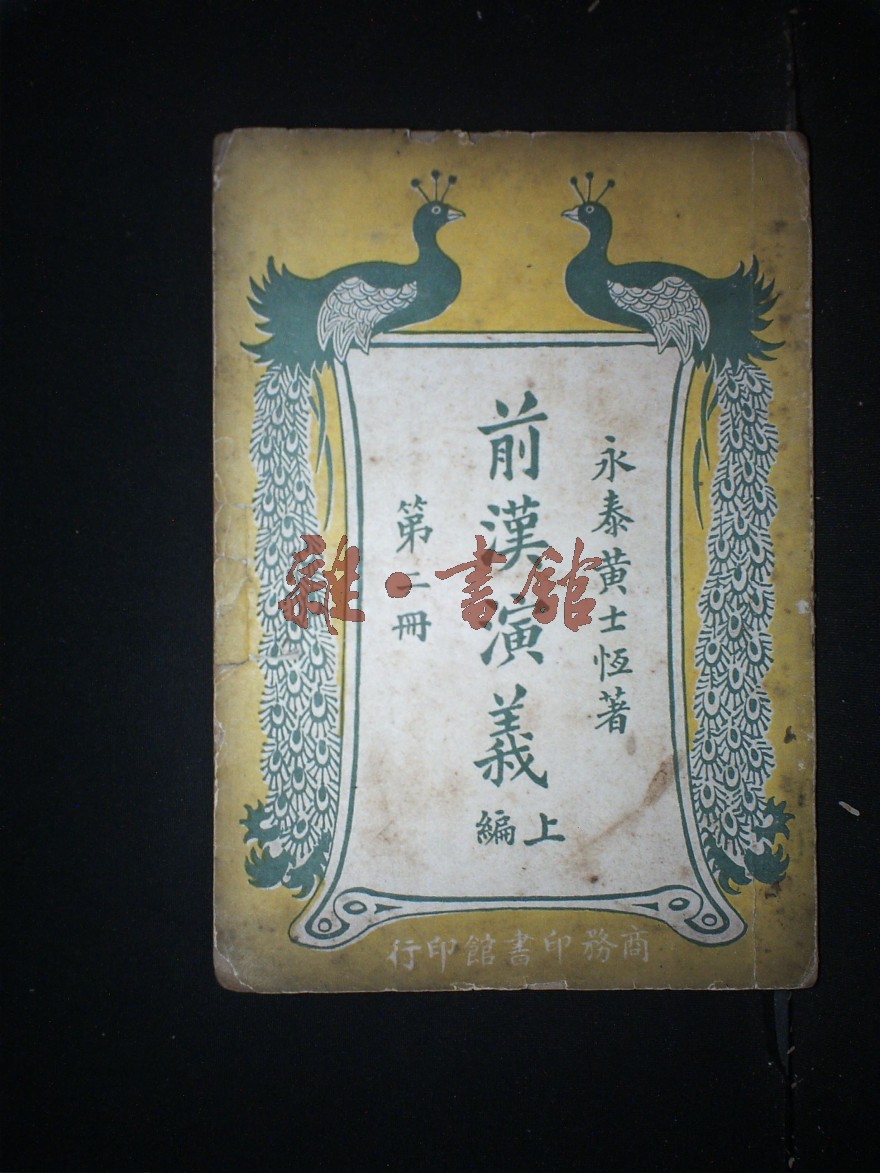 永泰黃士恆著
前漢演義
上編
第二冊
商務印書館印行
雜·書館